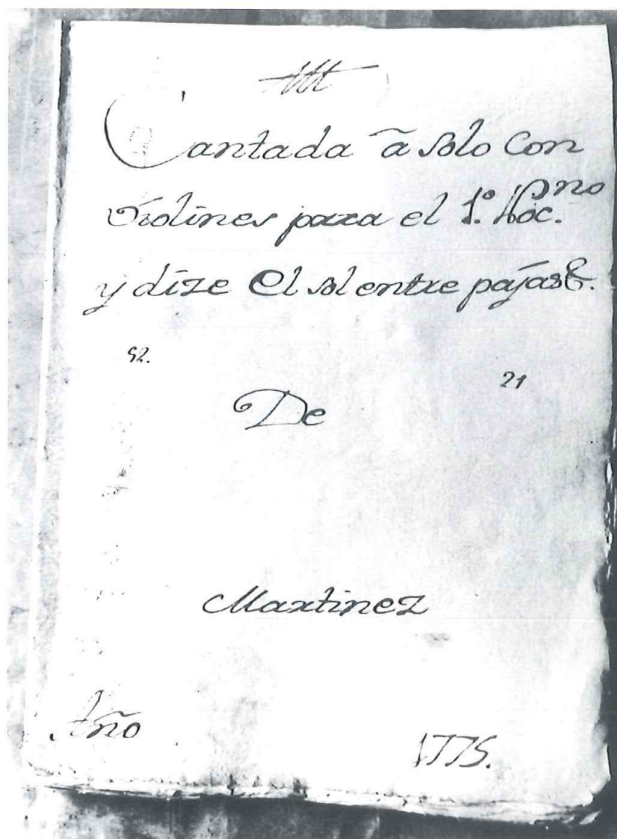 Cantada a solo con
violines para el 1º. Noc.no
y dize El sol entre pajas &.
52.
21
De
Martinez
Año
1775.